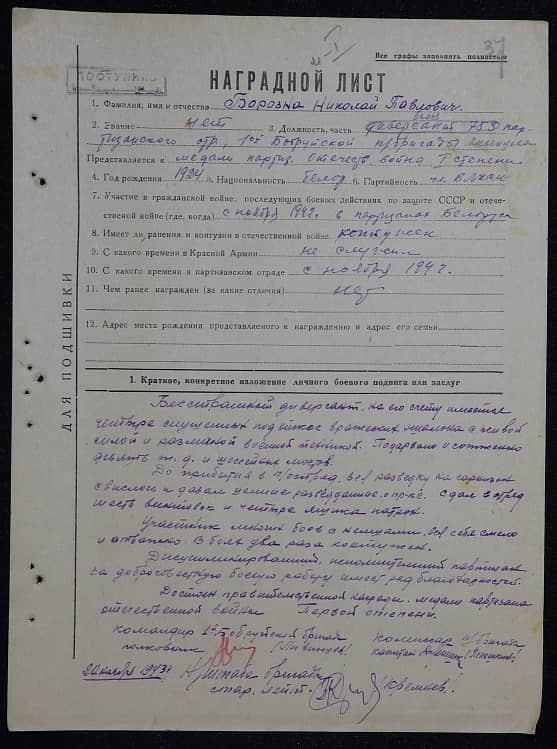 37
Все графы заполнять полностью
ПОСТУПИЛО
НАГРАДНОЙ ЛИСТ
1. Фамилия, имя и отчество Борозна Николай Павлович.
2. Звание нет 3. Должность, часть диверсант 752 пар-
тизанского отр., 1ой Бобруйской п/бригады
Представляется к медали партиз. отечеств. война I степени
4. Год рождения 1924 5. Национальность белор 6. Партийность чл. ВЛКСМ
7. Участие в гражданской войне, последующих боевых действиях по защите СССР и отече-
ственной войне (где, когда) с ноября 1942 г. в партизанах Белорус
8. Имеет ли ранения и контузии в отечественной войне контужен
9. С какого времени в Красной Армии не служил
10. С какого времени в партизанском отряде с ноября 1942 г.
11. Чем ранее награжден (за какие отличия) нет
12. Адрес места рождения представляемого к награждению и адрес его семьи
ДЛЯ ПОДШИВКИ
1. Краткое, конкретное изложение личного боевого подвига или заслуг
Бесстрашный диверсант, на его счету имеется
четыре спущенных под откос вражеских эшелона с живой
силой и различной военной техникой. Подорвано и сожжено
девять ж.д. и шоссейных мостов.
До прибытия в п/отряд, вел разведку на гарнизон
Свислочь и давал ценные разведданные о пр-ке. Сдал в отряд
шесть винтовок и четыре патрон.
Участник многих боев с немцами, вел себя смело
и отважно. В боях два раза контужен.
Дисциплинированный, партизан
за добросовестную боевую работу имеет ряд благодарностей.
Достоин правительственной награды, медали партизана
отечественной войны Первой степени.
Командир 1ой Бобруйской бригады
полковник (Ливинцев)
Комиссар п/бригады
капитан
20 ноября 1943 г.
Н/штаба бригады
стар. лейт. (Кремнев)